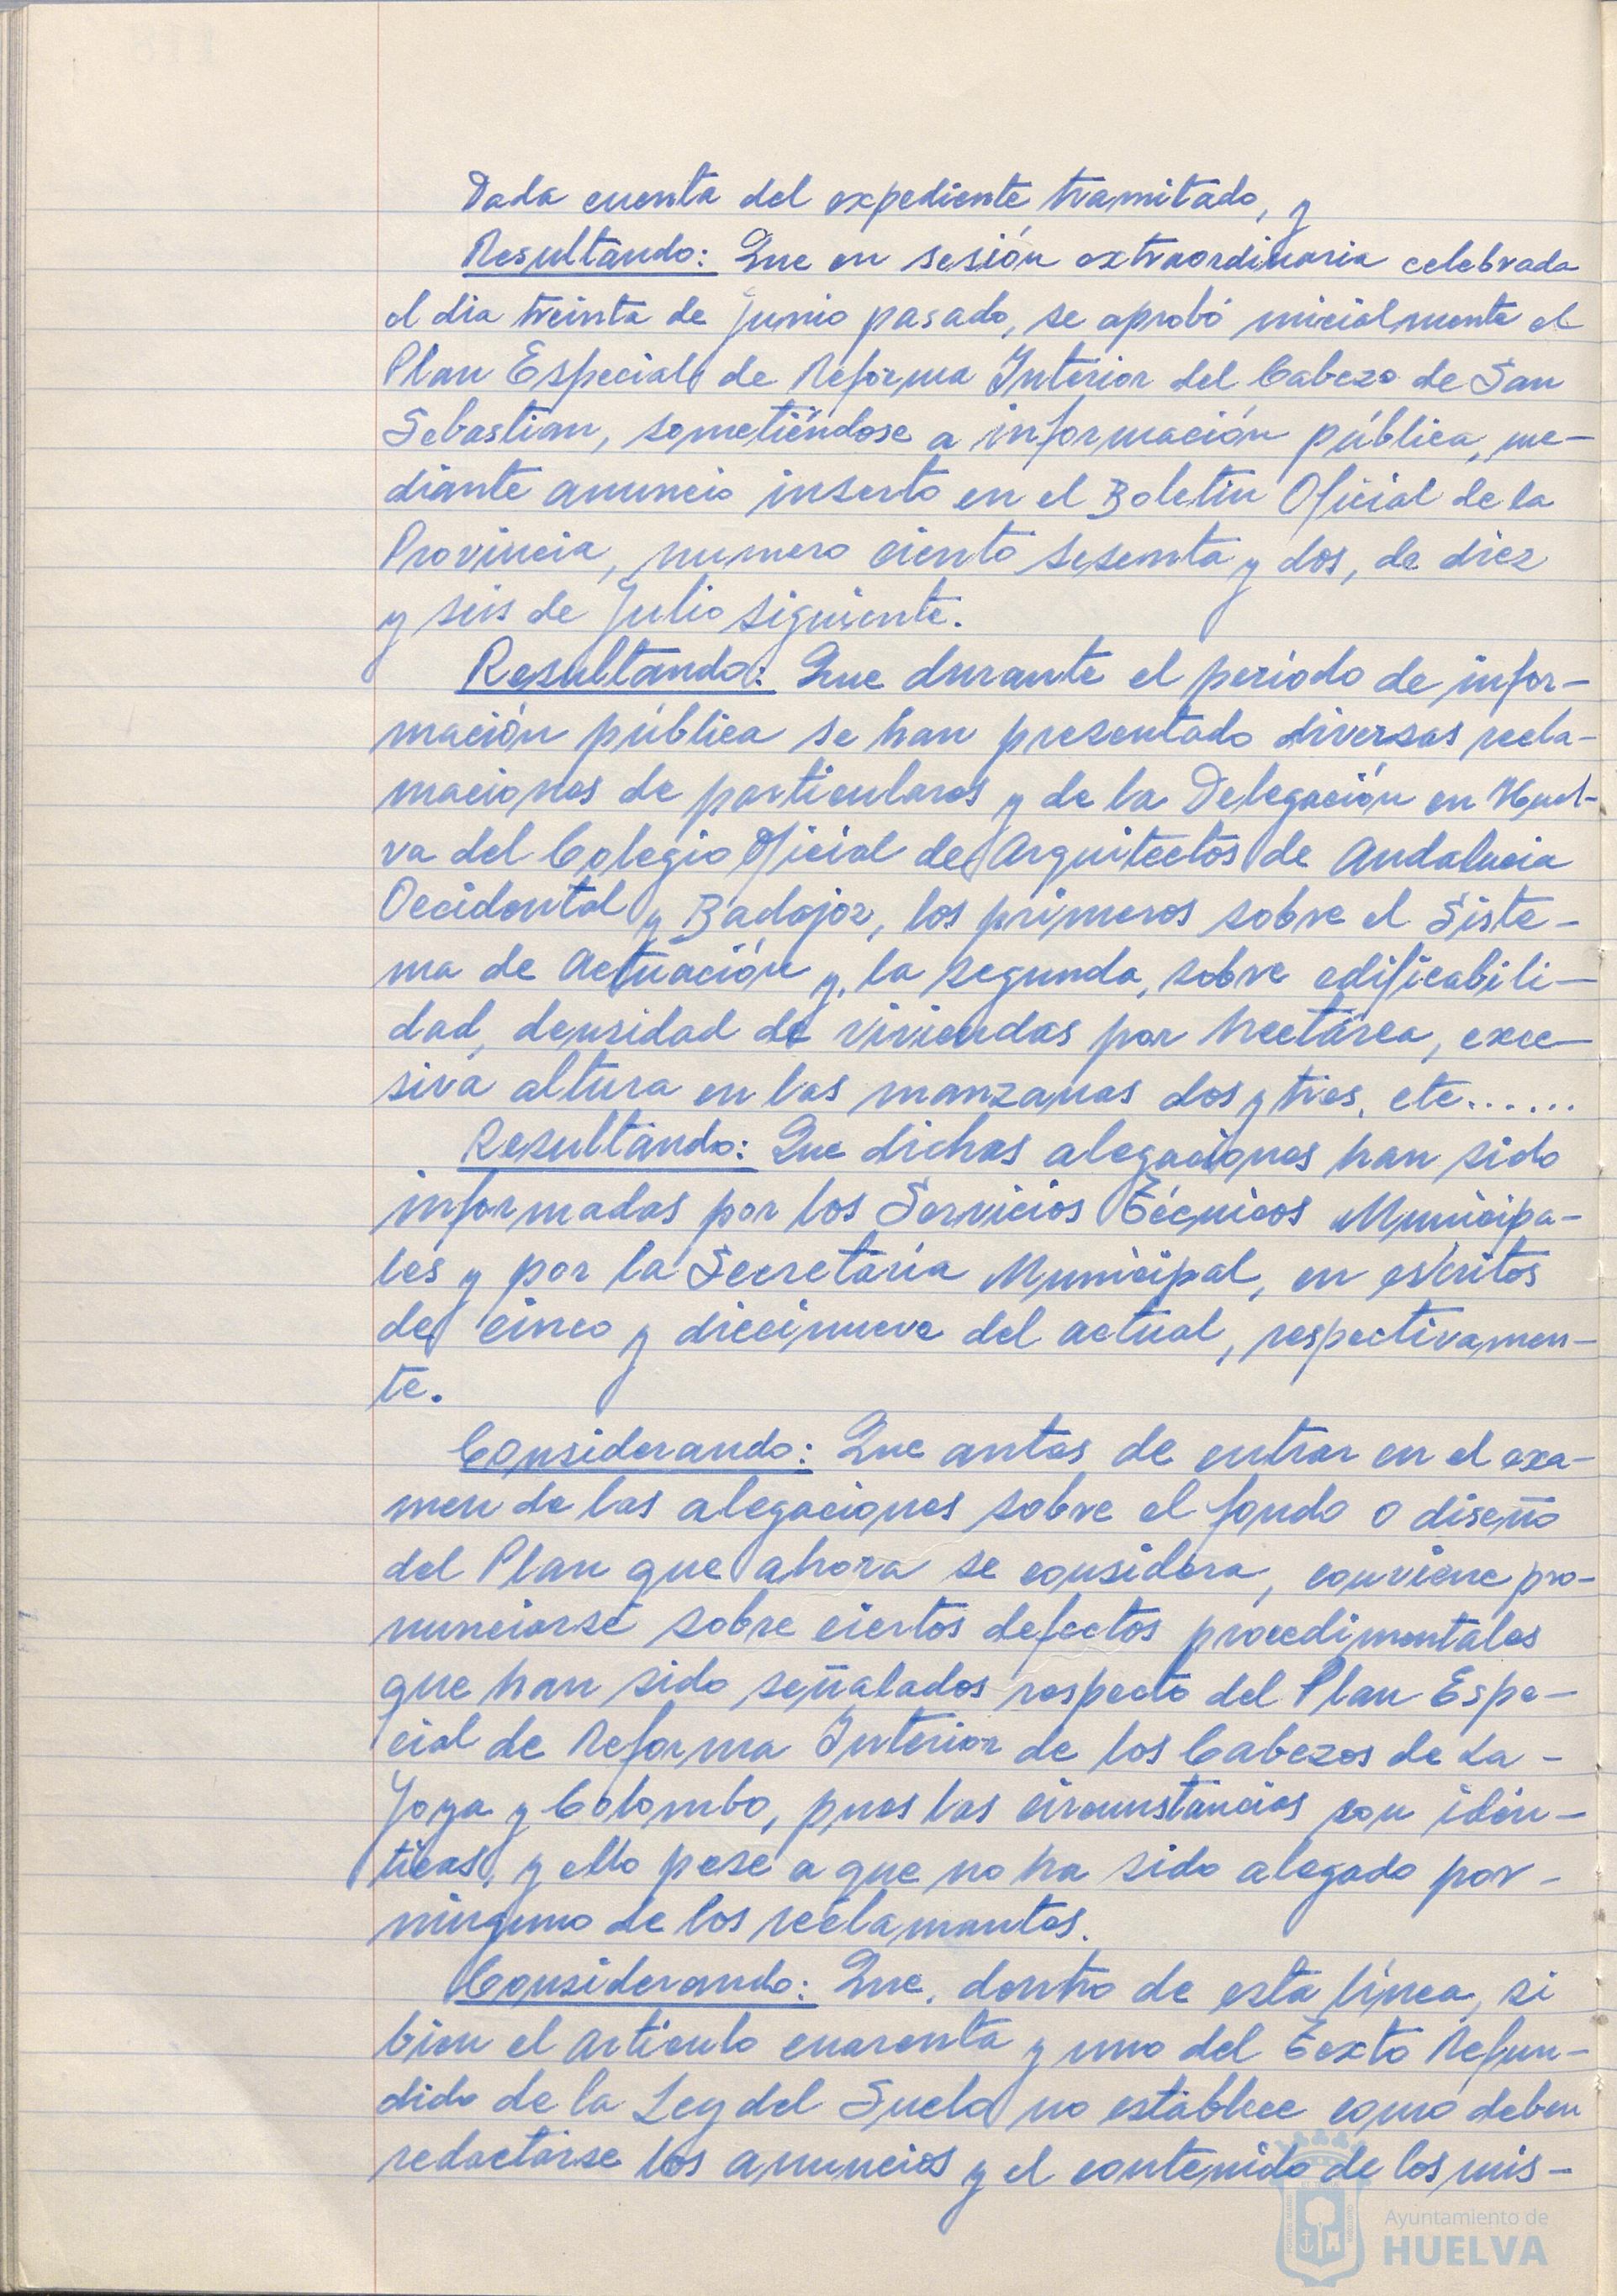 Dada cuenta del expediente tramitado, y
Resultando: Que en sesión extraordinaria celebrada
el dia treinta de Junio pasado, se aprobó inicialmente el
Plan Especial de Reforma Interior del Cabezo de San
Sebastian, sometiéndose a información pública, me-
diante anuncio inserto en el Boletin Oficial de la
Provincia, numero ciento sesenta y dos, de diez
y seis de Julio siguiente.
Resultando: Que durante el periodo de infor-
mación pública se han presentado diversas recla-
maciones de particulares y de la Delegación en Huel-
va del Colegio Oficial de Arquitectos de Andalucia
Occidental y Badajoz, los primeros sobre el Siste-
ma de Actuación y, la segunda, sobre edificabili-
dad, densidad de viviendas por hectárea, exce-
siva altura en las manzanas dos y tres, etc......
Resultando: Que dichas alegaciones han sido
informadas por los Servicios Técnicos Municipa-
les y por la Secretaría Municipal, en escritos
de cinco y diecinueve del actual, respectivamen-
te.
Considerando: Que antes de entrar en el exa-
men de las alegaciones sobre el fondo o diseño
del Plan que ahora se considera, conviene pro-
nunciarse sobre ciertos defectos procedimentales
que han sido señalados respecto del Plan Espe-
cial de Reforma Interior de los Cabezos de La-
Joya y Colombo, pues las circunstancias son idén-
ticas, y ello pese a que no ha sido alegado por-
ninguno de los reclamantes.
Considerando: Que, dentro de esta línea, si
bien el artículo cuarenta y uno del Texto Refun-
dido de la Ley del Suelo no establece como deben
redactarse los anuncios y el contenido de los mis-
Ayuntamiento de
HUELVA